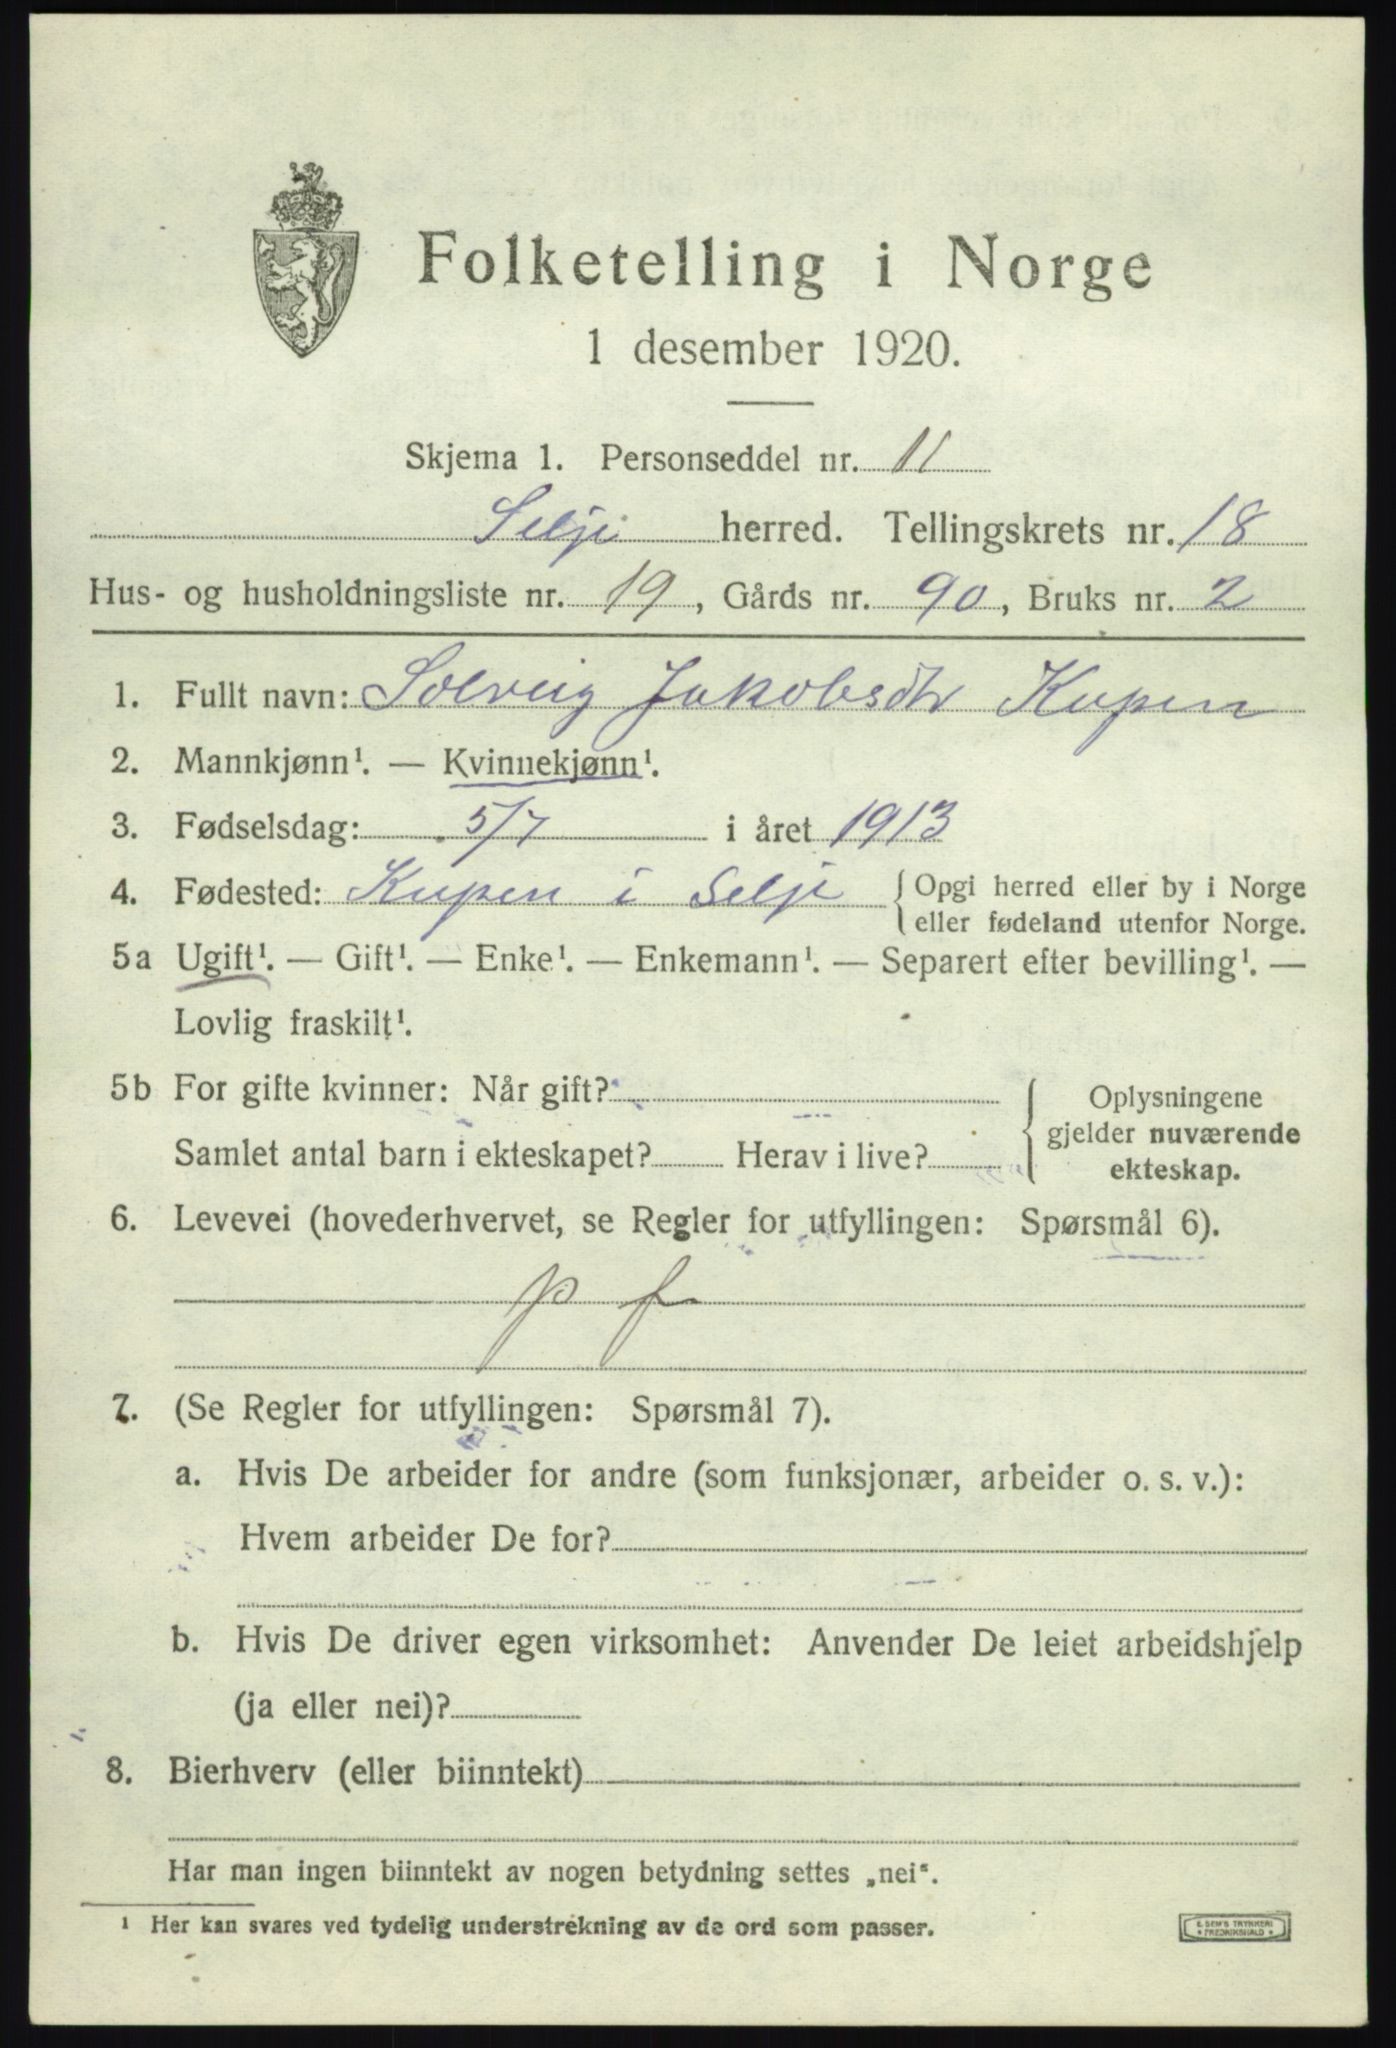 Folketelling i Norge
1 desember 1920.
Skjema 1. Personseddel nr. 11
Selje herred. Tellingskrets nr. 18
Hus- og husholdningsliste nr. 19, Gårds nr. 90, Bruks nr. 2
1. Fullt navn: Solveig Jakobsdtr Kupen
2. Mannkjønn¹. — Kvinnekjønn¹.
3. Fødselsdag: 5/7 i året 1913
4. Fødested: Kupen i Selje { Opgi herred eller by i Norge
eller fødeland utenfor Norge.
5a Ugift¹. — Gift¹. — Enke¹. — Enkemann¹. — Separert efter bevilling¹. —
Lovlig fraskilt¹.
5b For gifte kvinner: Når gift?
Samlet antal barn i ekteskapet? Herav i live?
{ Oplysningene
gjelder nuværende
ekteskap.
6. Levevei (hovederhvervet, se Regler for utfyllingen: Spørsmål 6).
p f
7. (Se Regler for utfyllingen: Spørsmål 7).
a. Hvis De arbeider for andre (som funksjonær, arbeider o. s. v.):
Hvem arbeider De for?
b. Hvis De driver egen virksomhet: Anvender De leiet arbeidshjelp
(ja eller nei)?
8. Bierhverv (eller biinntekt)
Har man ingen biinntekt av nogen betydning settes „nei“.
¹ Her kan svares ved tydelig understrekning av de ord som passer.
E. SEM'S TRYKKERI
* FREDRIKSHALD *